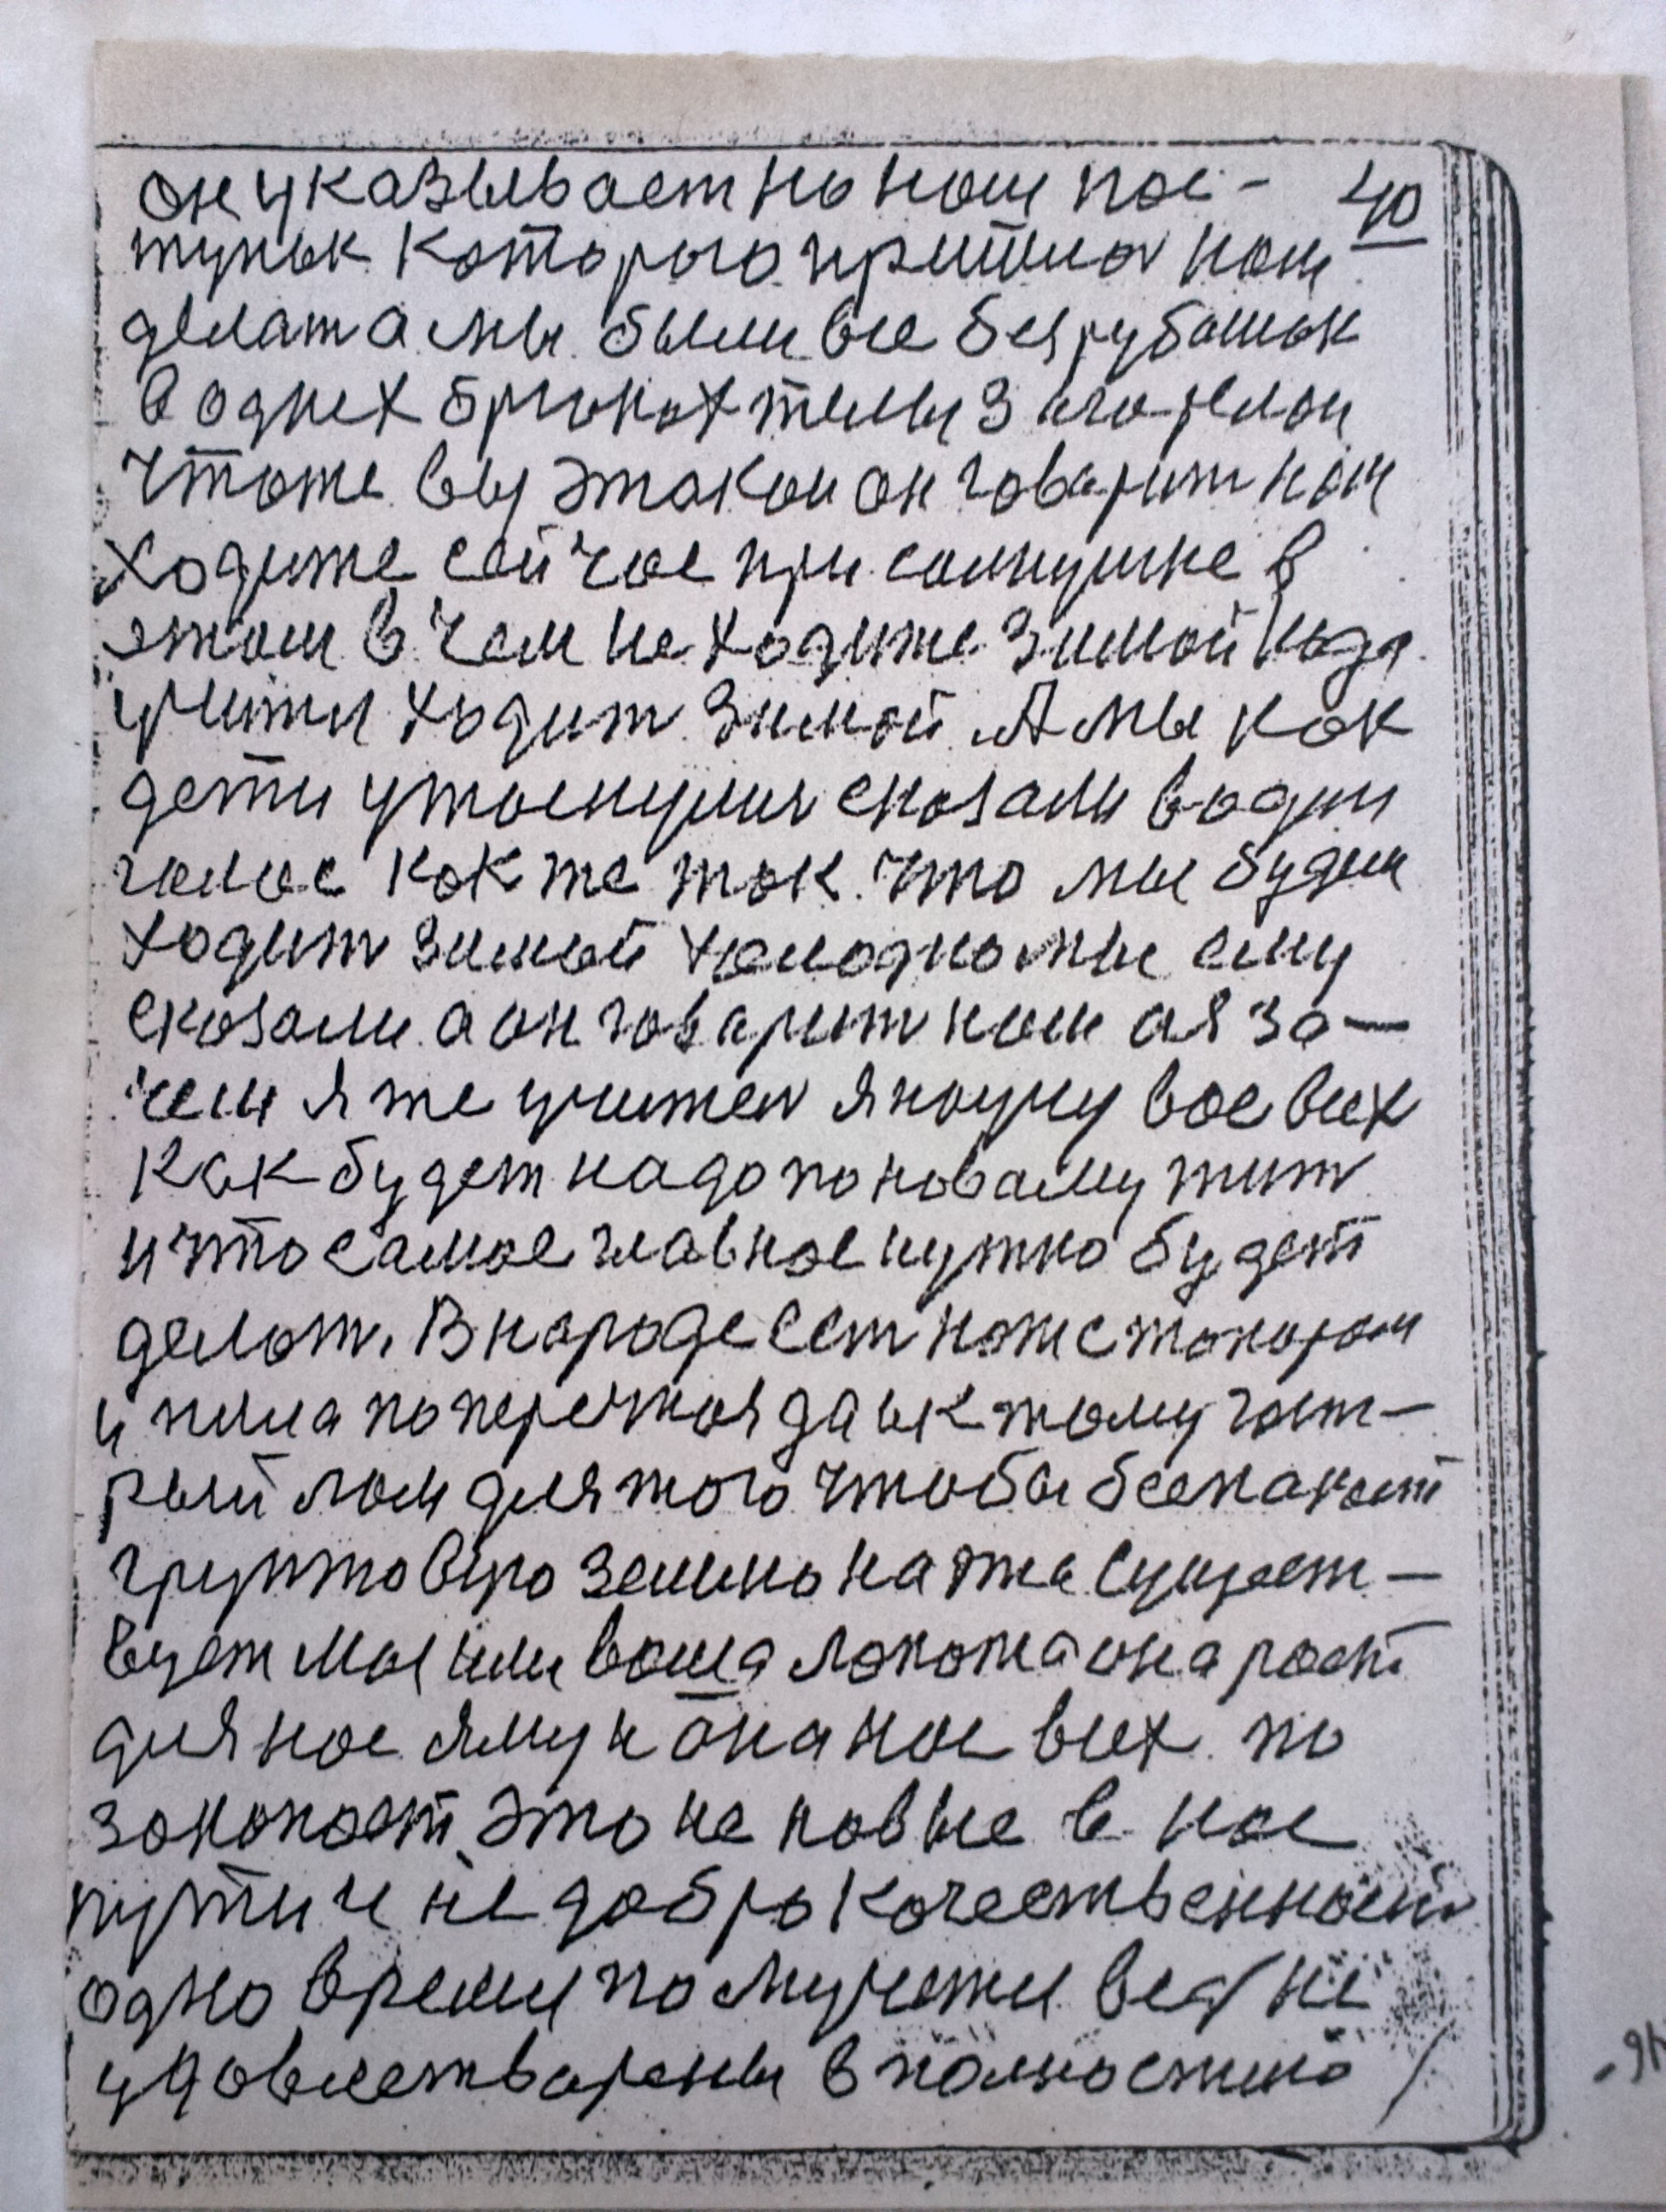 он указывает на нам пос- 40
тупък которого притша нам
делат а мы были все без рубашок
в однех брюках телы загорелаи
Чтоже вы этакои он говарит нам
ходите сейчас при солнушке в
этом в чем не ходите зимой когда
учител ходит зимой. А мы как
дети утоснулис сказали водин
голос как же так что мы будим
ходит зимой холодно мы ему
сказали а он говарит нам ая за-
чем я же учител я научу вас всех
как будет надо по новаму жит
и что самое главное нужно будет
делат. В народе ест нож с топором
и пила поперечная да ик тому гост-
рый лом для того чтобы бсепакоит
грунтовую землю на это сущест-
вует мая или ваша лопата она роет
для нас яму и она нас всех по
закопает это не новые в нас
пути и не доброкачественност
одно времи по мучети вед не
удовлетварены в полностию